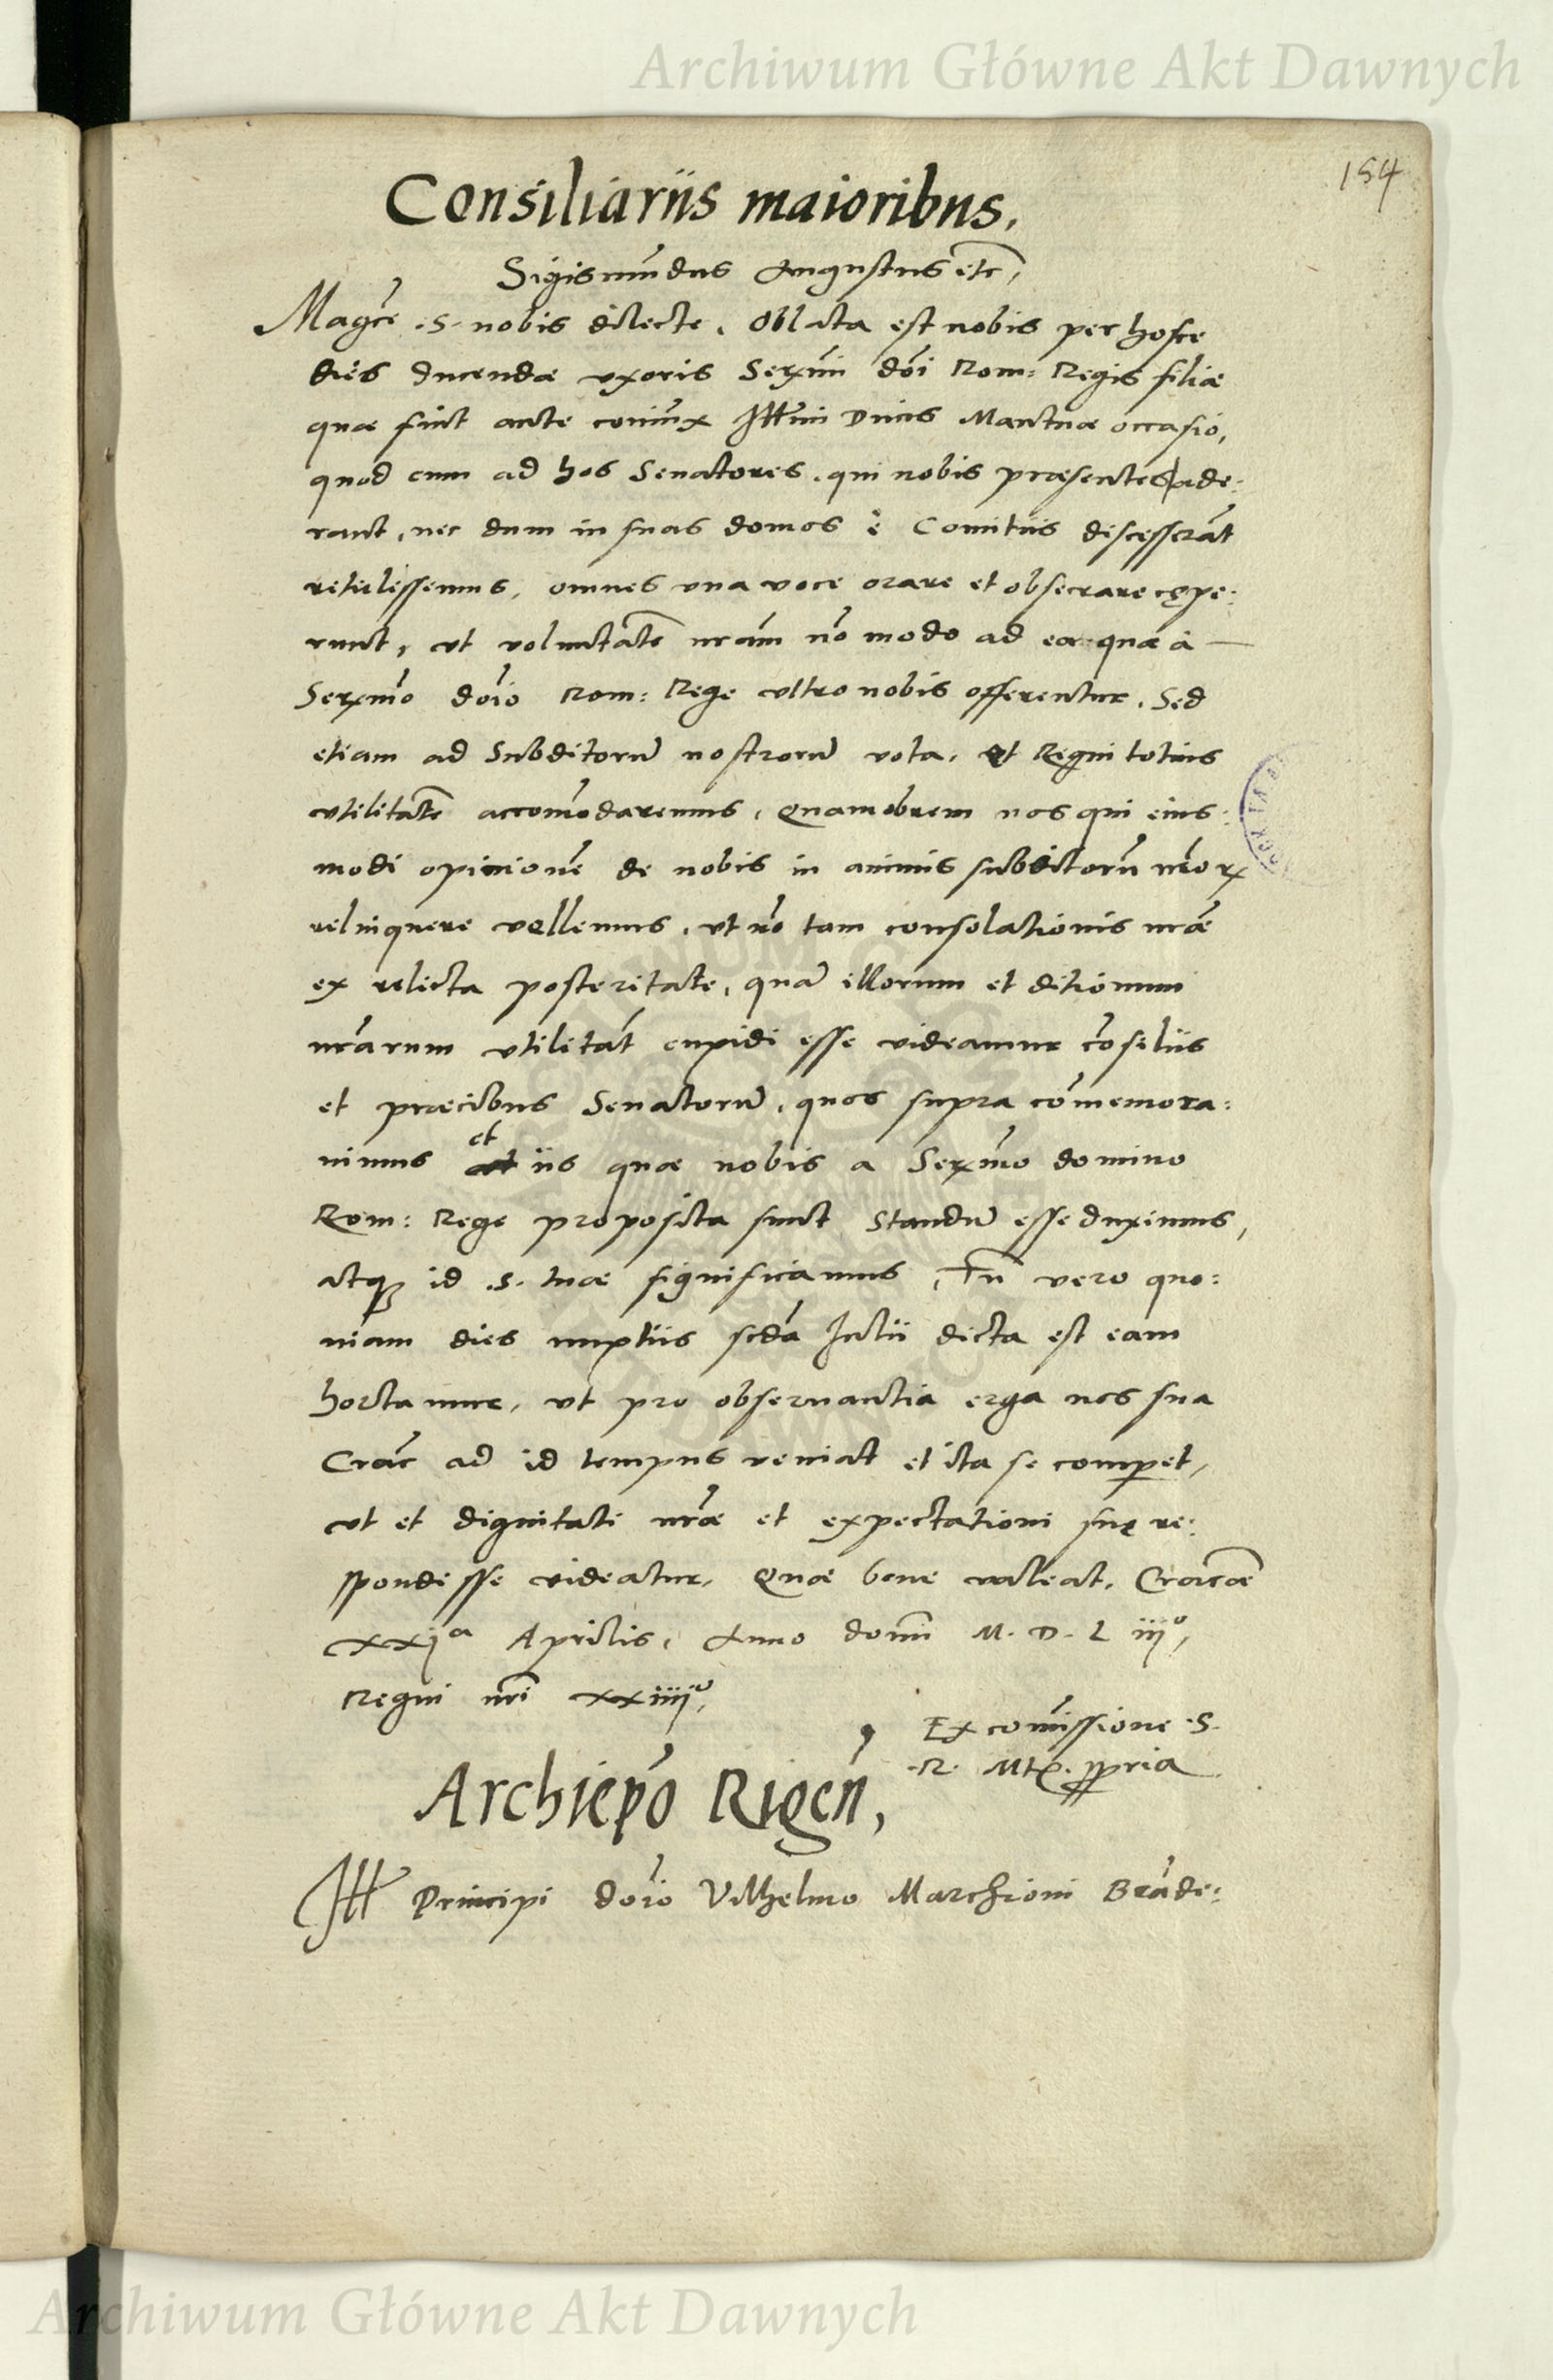 Archiwum Główne Akt Dawnych
154
Consiliariis maioribus.
Sigismūdus Augustus etc,
Magce .S. nobis dilecte. Oblata est nobis per hosce
dies ducendæ uxoris Serxmi doi Rom: Regis filiæ
quæ fuit ante coniūx Illmi Ducis Mantuæ occasio,
quod cum ad hos Senatores. qui nobis præsentes ade:
rant, nec dum in suas domos è Comitiis discesserāt
retulissemus, omnes una voce orare et obsecrare cępe:
runt, ut voluntatē nrām nō modo ad ea quæ à
Serxmo doīo Rom: Rege ultro nobis offerentur. Sed
etiam ad Subditorū nostrorū vota, et Regni totius
utilitatē accomōdaremus, Quamobrem nos qui eius:
modi opinionē de nobis in animis subditorū nrorꝝ
relinquere vellemus, ut nō tam consolationis nræ
ex relicta posteritate, quā illorum et ditionum
nrārum utilitāt cupidi esse videamur cōsiliis
et præcibus Senatorū, quos supra cōmemora:
uimus et iis quæ nobis a Serxmo domino
Rom: Rege proposita sunt standū esse duximus,
atqꝫ id .S. tuæ significamus, Tū vero quo:
niam dies nuptiis scdā Julii dicta est eam
hortamur, ut pro obseruantia erga nos sua
Crāc ad id tempus veniat et ita se comꝑet,
ut et dignitati nræ et expectationi suę re:
spondisse videatur, Quæ bene valeat. Cracoæ
xxjᵃ Aprilis, Anno domi M. D. L iijᵒ,
Regni nri xxiiijᵒ,
Ex comīssione .S.
.R. Mtis. ꝓpria
Archiepō Rigeñ,
Ill Principi doīo Vilhelmo Marchioni Brāde:
Archiwum Główne Akt Dawnych